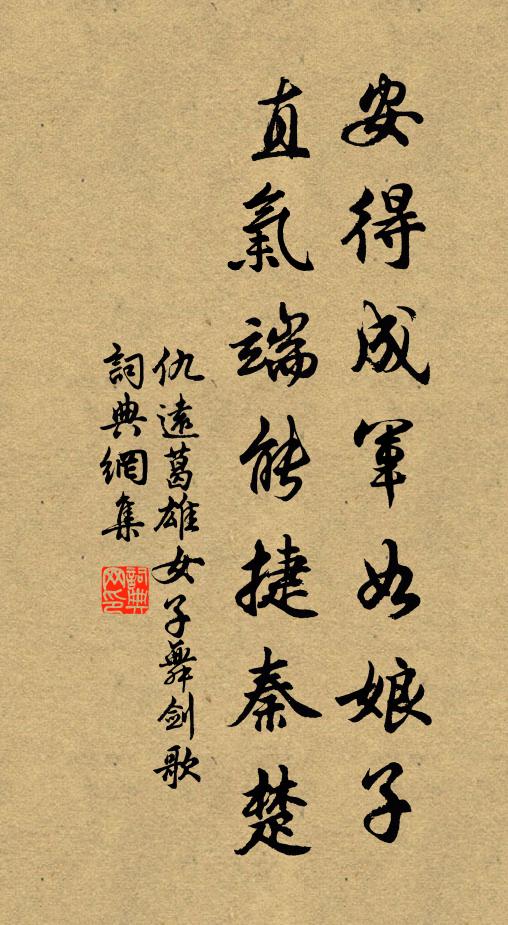 安得成軍如娘子
直氣端能捷秦楚
仇遠葛雄女子舞劍歌
詞典網集
詞典网印